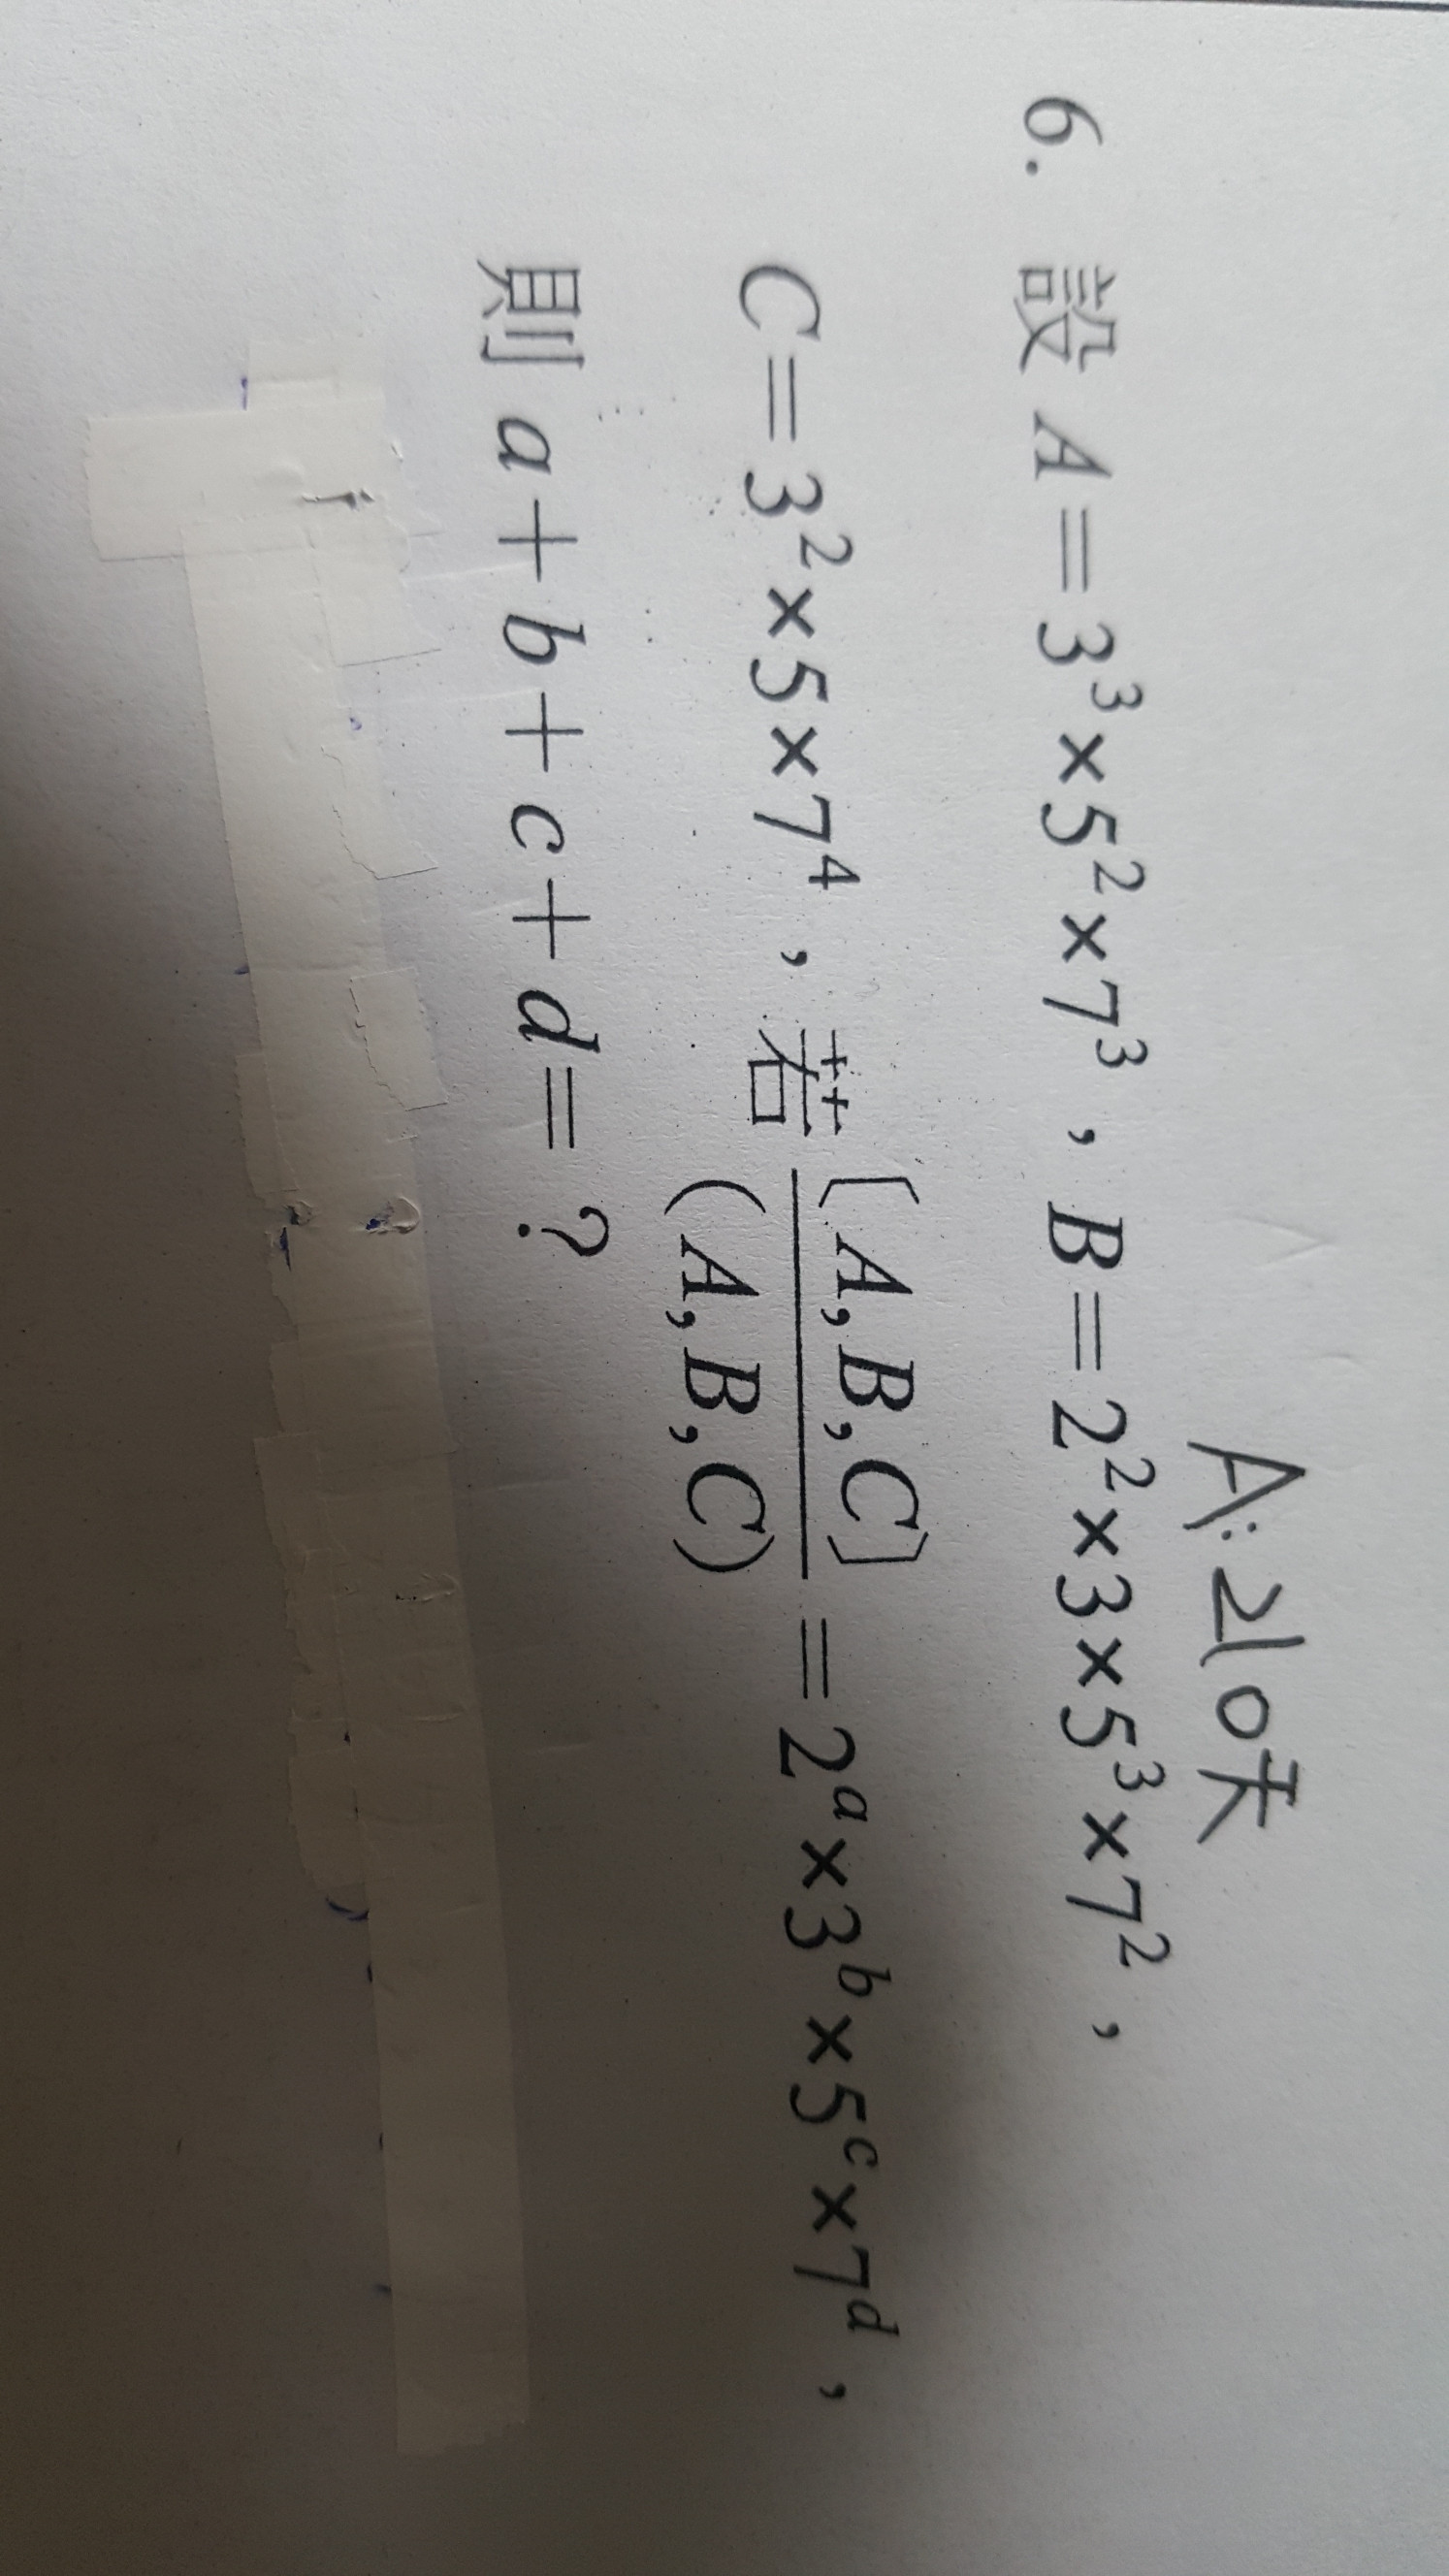 A:210天
6. 設 A=3³×5²×7³,B=2²×3×5³×7²,
C=3²×5×7⁴,若 [A,B,C]/(A,B,C) =2ᵃ×3ᵇ×5ᶜ×7ᵈ,
則 a+b+c+d=?